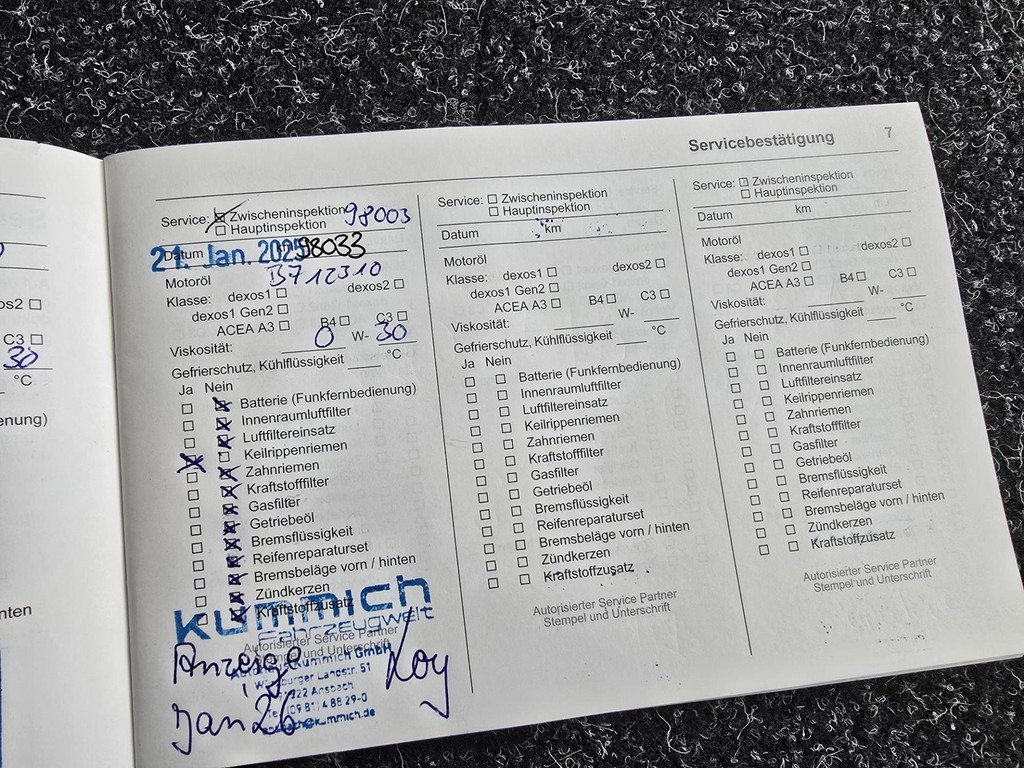 Servicebestätigung 7
os2
C3
30
°C
enung)
nten
Service: Zwischeninspektion 98003
Hauptinspektion
Datum km
21. Jan. 2025 98033
Motoröl B712310
Klasse: dexos1 dexos2
dexos1 Gen2
ACEA A3 B4 C3
Viskosität: 0 W- 30
Gefrierschutz, Kühlflüssigkeit °C
Ja Nein
Batterie (Funkfernbedienung)
Innenraumluftfilter
Luftfiltereinsatz
Keilrippenriemen
Zahnriemen
Kraftstofffilter
Gasfilter
Getriebeöl
Bremsflüssigkeit
Reifenreparaturset
Bremsbeläge vorn / hinten
Zündkerzen
Kraftstoffzusatz
kummich
Fahrzeugwelt
Autorisierter Service Partner
Stempel und Unterschrift
Kummich GmbH
Landstr. 51
Ansbach
Anzeige
Jan 26
Service: Zwischeninspektion
Hauptinspektion
Datum km
Motoröl
Klasse: dexos1 dexos2
dexos1 Gen2
ACEA A3 B4 C3
Viskosität: W-
Gefrierschutz, Kühlflüssigkeit °C
Ja Nein
Batterie (Funkfernbedienung)
Innenraumluftfilter
Luftfiltereinsatz
Keilrippenriemen
Zahnriemen
Kraftstofffilter
Gasfilter
Getriebeöl
Bremsflüssigkeit
Reifenreparaturset
Bremsbeläge vorn / hinten
Zündkerzen
Kraftstoffzusatz
Autorisierter Service Partner
Stempel und Unterschrift
Service: Zwischeninspektion
Hauptinspektion
Datum km
Motoröl
Klasse: dexos1 dexos2
dexos1 Gen2
ACEA A3 B4 C3
Viskosität: W-
Gefrierschutz, Kühlflüssigkeit °C
Ja Nein
Batterie (Funkfernbedienung)
Innenraumluftfilter
Luftfiltereinsatz
Keilrippenriemen
Zahnriemen
Kraftstofffilter
Gasfilter
Getriebeöl
Bremsflüssigkeit
Reifenreparaturset
Bremsbeläge vorn / hinten
Zündkerzen
Kraftstoffzusatz
Autorisierter Service Partner
Stempel und Unterschrift